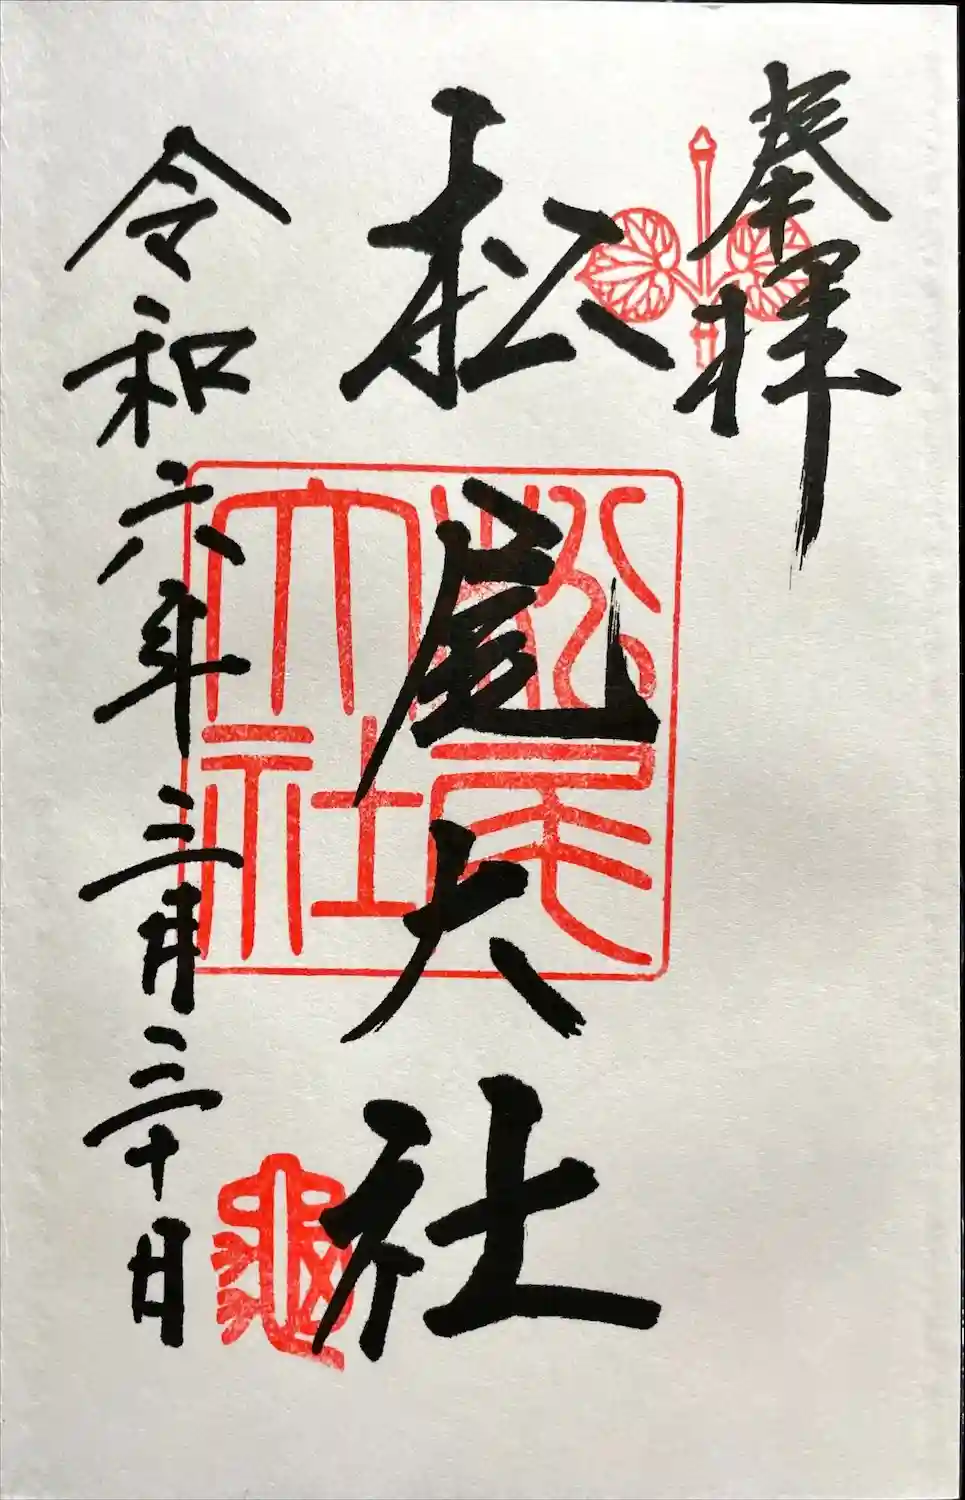 奉拝
松尾大社
令和六年三月三十日
松尾大社
亀